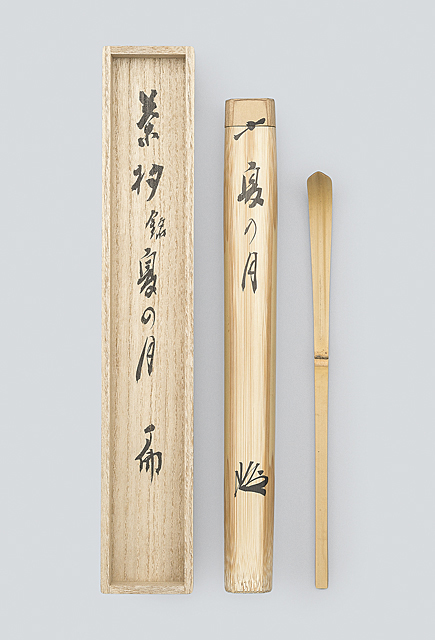 茶杓 銘 夏の月
夏の月